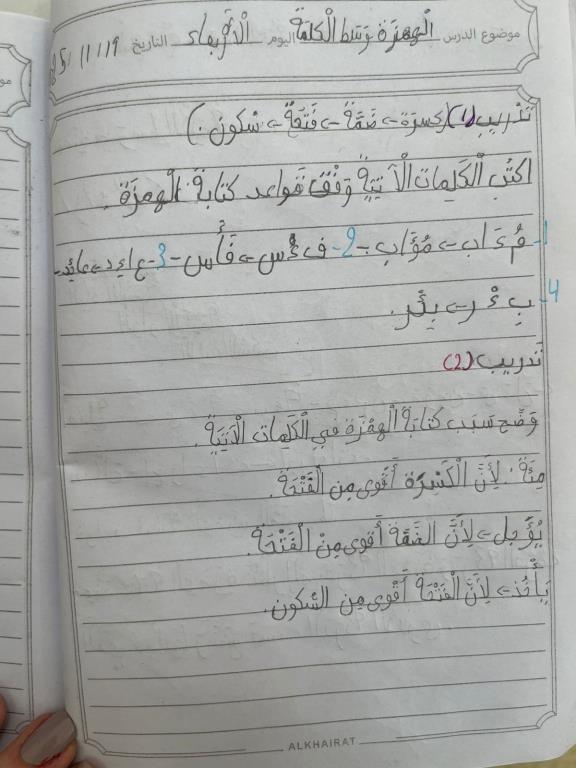 موضوع الدرس الْهمزة وسط الْكلمة اليوم الْأربعاء التاريخ 19/11/
تَدريب (1) (كسرة ← ضَمَّة ← فَتحَة ← سُكون.)
اكتُبِ الْكَلِمات الْآتيَةِ وَفْقَ قَواعد كتابة الْهمزَةِ.
1- مُ ءَ اب ← مُؤَاب - 2- ف ءْ س ← فَأْس - 3- ع ا ءِ د ← عائِد -
4- بِ ءْ ر ← بِئْر.
تَدريب (2)
وَضّح سَبَب كتابَة الْهمْزَة في الْكَلِمات الْآتيَة.
مِئَة: لِأَنَّ الْكَسْرَة أَقْوى مِن الْفَتْحَة.
يُؤَجل ← لِأَنَّ الضَّمَّة أَقوى مِنْ الْفَتْحَة.
يَأْخُذ ← لِأَنَّ الْفَتْحَةَ أَقْوى مِن السُّكون.
ALKHAIRAT